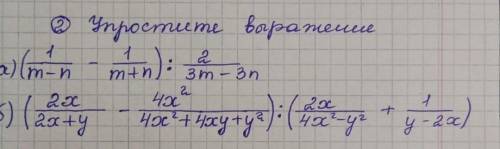 ② Упростите выражение
а) (1/(m-n) - 1/(m+n)) : 2/(3m-3n)
б) (2x/(2x+y) - 4x²/(4x²+4xy+y²)) : (2x/(4x²-y²) + 1/(y-2x))